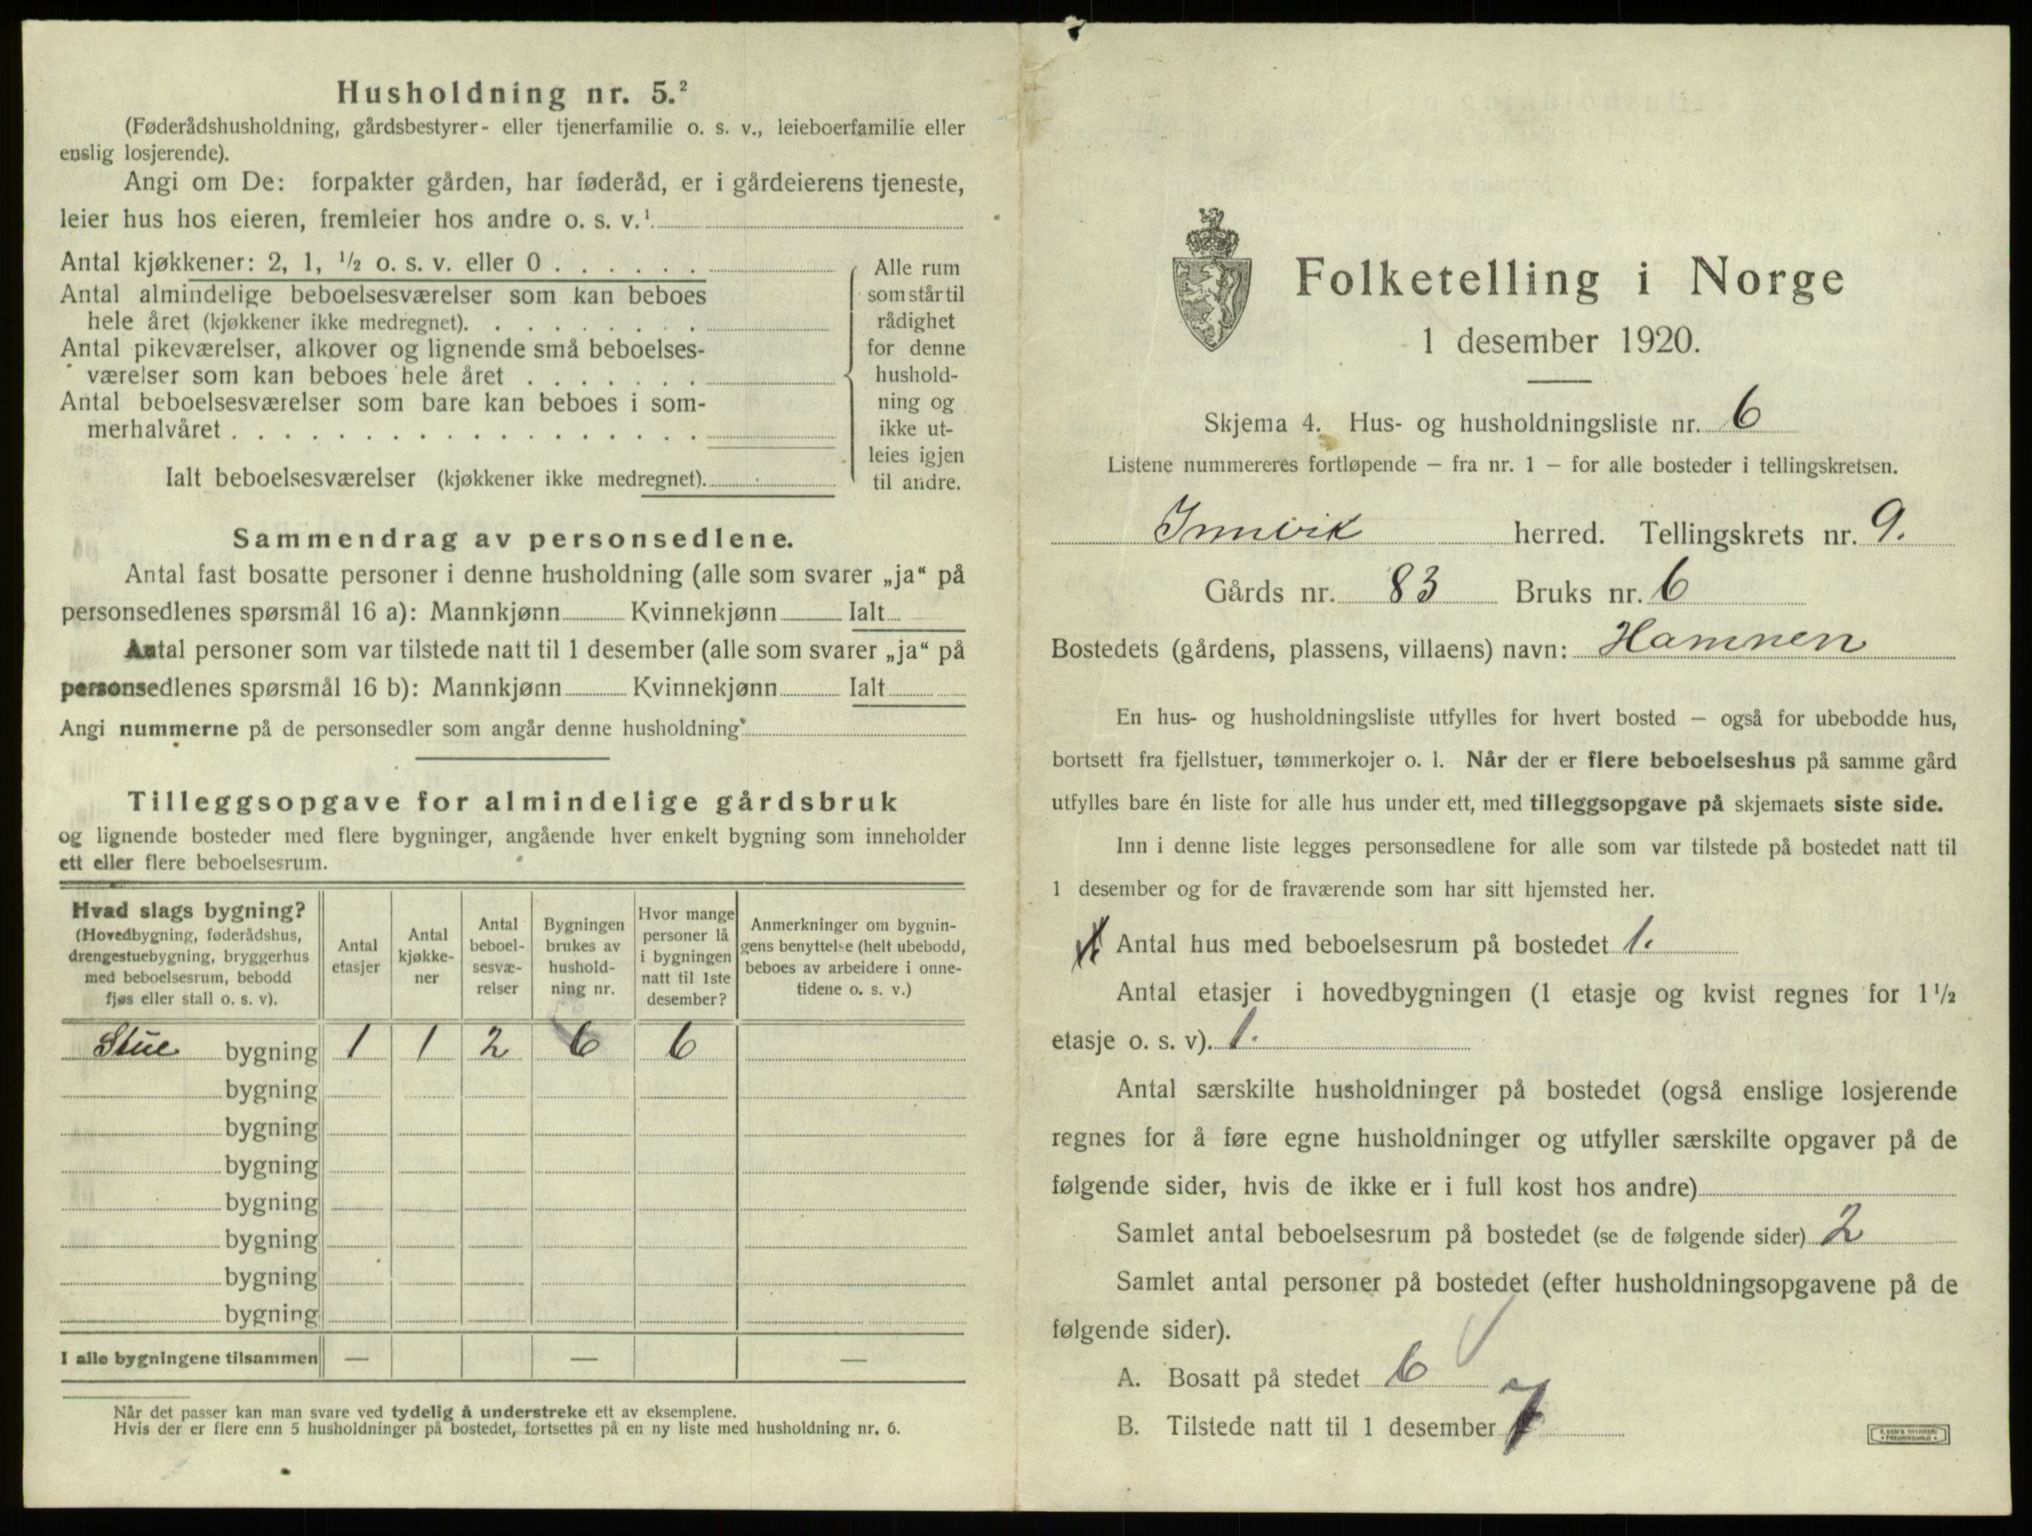 Husholdning nr. 5.²
(Føderådshusholdning, gårdsbestyrer- eller tjenerfamilie o. s. v., leieboerfamilie eller
enslig losjerende).
Angi om De: forpakter gården, har føderåd, er i gårdeierens tjeneste,
leier hus hos eieren, fremleier hos andre o. s. v.¹
Antal kjøkkener: 2, 1, ½ o. s. v. eller 0 . . . . . .
Antal almindelige beboelsesværelser som kan beboes
hele året (kjøkkener ikke medregnet). . . . . . . . .
Antal pikeværelser, alkover og lignende små beboelses-
værelser som kan beboes hele året . . . . . . .
Antal beboelsesværelser som bare kan beboes i som-
merhalvåret . . . . . . . . . . . . . . . . . .
Ialt beboelsesværelser (kjøkkener ikke medregnet).
Alle rum
som står til
rådighet
for denne
hushold-
ning og
ikke ut-
leies igjen
til andre.
Sammendrag av personsedlene.
Antal fast bosatte personer i denne husholdning (alle som svarer „ja“ på
personsedlenes spørsmål 16 a): Mannkjønn Kvinnekjønn Ialt
Antal personer som var tilstede natt til 1 desember (alle som svarer „ja“ på
personsedlenes spørsmål 16 b): Mannkjønn Kvinnekjønn Ialt
Angi nummerne på de personsedler som angår denne husholdning
Tilleggsopgave for almindelige gårdsbruk
og lignende bosteder med flere bygninger, angående hver enkelt bygning som inneholder
ett eller flere beboelsesrum.
Hvad slags bygning?
(Hovedbygning, føderådshus,
drengestuebygning, bryggerhus
med beboelsesrum, bebodd
fjøs eller stall o. s. v).
Antal
etasjer
Antal
kjøkke-
ner
Antal
beboel-
sesvæ-
relser
Bygningen
brukes av
hushold-
ning nr.
Hvor mange
personer lå
i bygningen
natt til 1ste
desember?
Anmerkninger om bygnin-
gens benyttelse (helt ubebodd,
beboes av arbeidere i onne-
tidene o. s. v.)
Stue bygning 1 1 2 6 6
bygning
bygning
bygning
bygning
bygning
bygning
bygning
I alle bygningene tilsammen — — —
Når det passer kan man svare ved tydelig å understreke ett av eksemplene.
Hvis der er flere enn 5 husholdninger på bostedet, fortsettes på en ny liste med husholdning nr. 6.
Folketelling i Norge
1 desember 1920.
Skjema 4. Hus- og husholdningsliste nr. 6
Listene nummereres fortløpende — fra nr. 1 — for alle bosteder i tellingskretsen.
Innvik herred. Tellingskrets nr. 9.
Gårds nr. 83 Bruks nr. 6
Bostedets (gårdens, plassens, villaens) navn: Hamnen
En hus- og husholdningsliste utfylles for hvert bosted — også for ubebodde hus,
bortsett fra fjellstuer, tømmerkojer o. l. Når der er flere beboelseshus på samme gård
utfylles bare én liste for alle hus under ett, med tilleggsopgave på skjemaets siste side.
Inn i denne liste legges personsedlene for alle som var tilstede på bostedet natt til
1 desember og for de fraværende som har sitt hjemsted her.
Antal hus med beboelsesrum på bostedet 1.
Antal etasjer i hovedbygningen (1 etasje og kvist regnes for 1½
etasje o. s. v). 1.
Antal særskilte husholdninger på bostedet (også enslige losjerende
regnes for å føre egne husholdninger og utfyller særskilte opgaver på de
følgende sider, hvis de ikke er i full kost hos andre)
Samlet antal beboelsesrum på bostedet (se de følgende sider) 2
Samlet antal personer på bostedet (efter husholdningsopgavene på de
følgende sider).
A. Bosatt på stedet 6
B. Tilstede natt til 1 desember 7